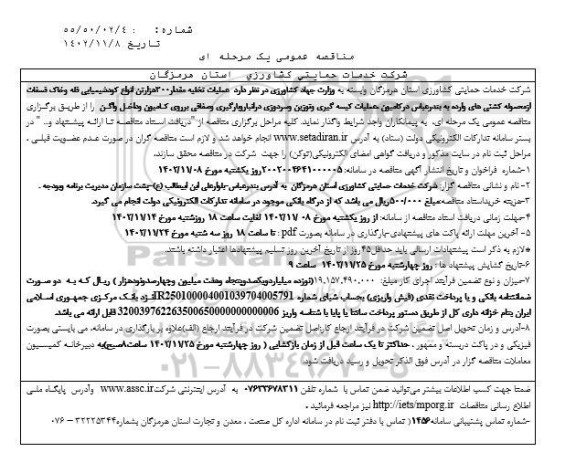 شماره: 55/50/02/4
تاریخ 1402/11/8
مناقصه عمومی یک مرحله ای
شرکت خدمات حمایتی کشاورزی استان هرمزگان
شرکت خدمات حمایتی کشاورزی استان هرمزگان وابسته به وزارت جهاد کشاورزی در نظر دارد عملیات تخلیه مقدار 300هزارتن انواع کودشیمیایی فله وخاک فسفات
ازمحموله کشتی های وارده به بندرعباس درکامیون ،عملیات کیسه گیری وتوزین وسردوزی درانباروبارگیری وصفافی برروی کامیون وداخل واگن را از طریق برگزاری
مناقصه عمومی یک مرحله ای، به پیمانکاران واجد شرایط واگذار نماید. کلیه مراحل برگزاری مناقصه از "دریافت اسناد مناقصه تا ارائه پیشنهاد و.. " در
بستر سامانه تدارکات الکترونیکی دولت (ستاد) به آدرس www.setadiran.ir انجام خواهد شد و لازم است مناقصه گران در صورت عدم عضویت قبلی ،
مراحل ثبت نام در سایت مذکور و دریافت گواهی امضای الکترونیکی(توکن) را جهت شرکت در مناقصه محقق سازند.
1-شماره فراخوان و تاریخ انتشار آگهی مناقصه در سامانه: 2002004641000005روز یکشنبه مورخ 1402/11/08
2- نام و نشانی مناقصه گزار شرکت خدمات حمایتی کشاورزی استان هرمزگان به آدرس بندرعباس-بلوارعلی ابن ابیطالب (ع)-پشت سازمان مدیریت برنامه وبودجه .
3-هزینه خریداسناد مناقصه:مبلغ 500/000ریال می باشد که از درگاه بانکی موجود در سامانه تدارکات الکترونیکی دولت انجام می گیرد.
4-مهلت زمانی دریافت اسناد مناقصه از سامانه: از روز یکشنبه مورخ 1402/11/08 لغایت ساعت 18 روزشنبه مورخ 1402/11/14
5- آخرین مهلت ارائه پاکت های پیشنهادی-بارگذاری در سامانه بصورت pdf : تا ساعت 18 روز سه شنبه مورخ 1402/11/24
*لازم به ذکر است پیشنهادات ارسالی باید حداقل 45روز از تاریخ آخرین روز تسلیم پیشنهادها اعتبار داشته باشند.
6-تاریخ گشایش پیشنهاد ها : روز چهارشنبه مورخ 1402/11/25 ساعت 9
7-میزان و نوع تضمین فرآیند اجرای کار مبلغ: 19,157,490,000(نوزده میلیاردویکصدوپنجاه وهفت میلیون وچهارصدونودهزار ) ریال که به دو صورت
ضمانتنامه بانکی و یا پرداخت نقدی (فیش واریزی) بحساب شبای شماره IR250100004001039704005791نزد بانک مرکزی جمهوری اسلامی
ایران بنام خزانه داری کل از طریق دستور پرداخت ساتنا یا پایا با شناسه واریز 320039762263500650000000000006 قابل ارائه می باشد.
8-آدرس و زمان تحویل اصل تضمین شرکت در فرآیند ارجاع کار:اصل تضمین شرکت در فرآیند ارجاع (الف)علاوه بر بارگذاری در سامانه، می بایستی بصورت
فیزیکی و در پاکت دربسته و ممهور ، حداکثر تا یک ساعت قبل از زمان بازگشایی ( روز چهارشنبه مورخ 1402/11/25 ساعت8صبح)به دبیرخانه کمیسیون
معاملات مناقصه گزار در آدرس فوق الذکر تحویل و رسید دریافت شود.
ضمنا جهت کسب اطلاعات بیشتر می‌توانید ضمن تماس با شماره تلفن 07633678311 به آدرس اینترنتی شرکت www.assc.ir وآدرس پایگاه ملی
اطلاع رسانی مناقصات http://iets/mporg.ir نیز مراجعه فرمائید .
-شماره تماس پشتیبانی سامانه1456( تماس با دفتر ثبت نام در سامانه اداره کل صنعت ، معدن و تجارت استان هرمزگان بشماره32225344 – 076